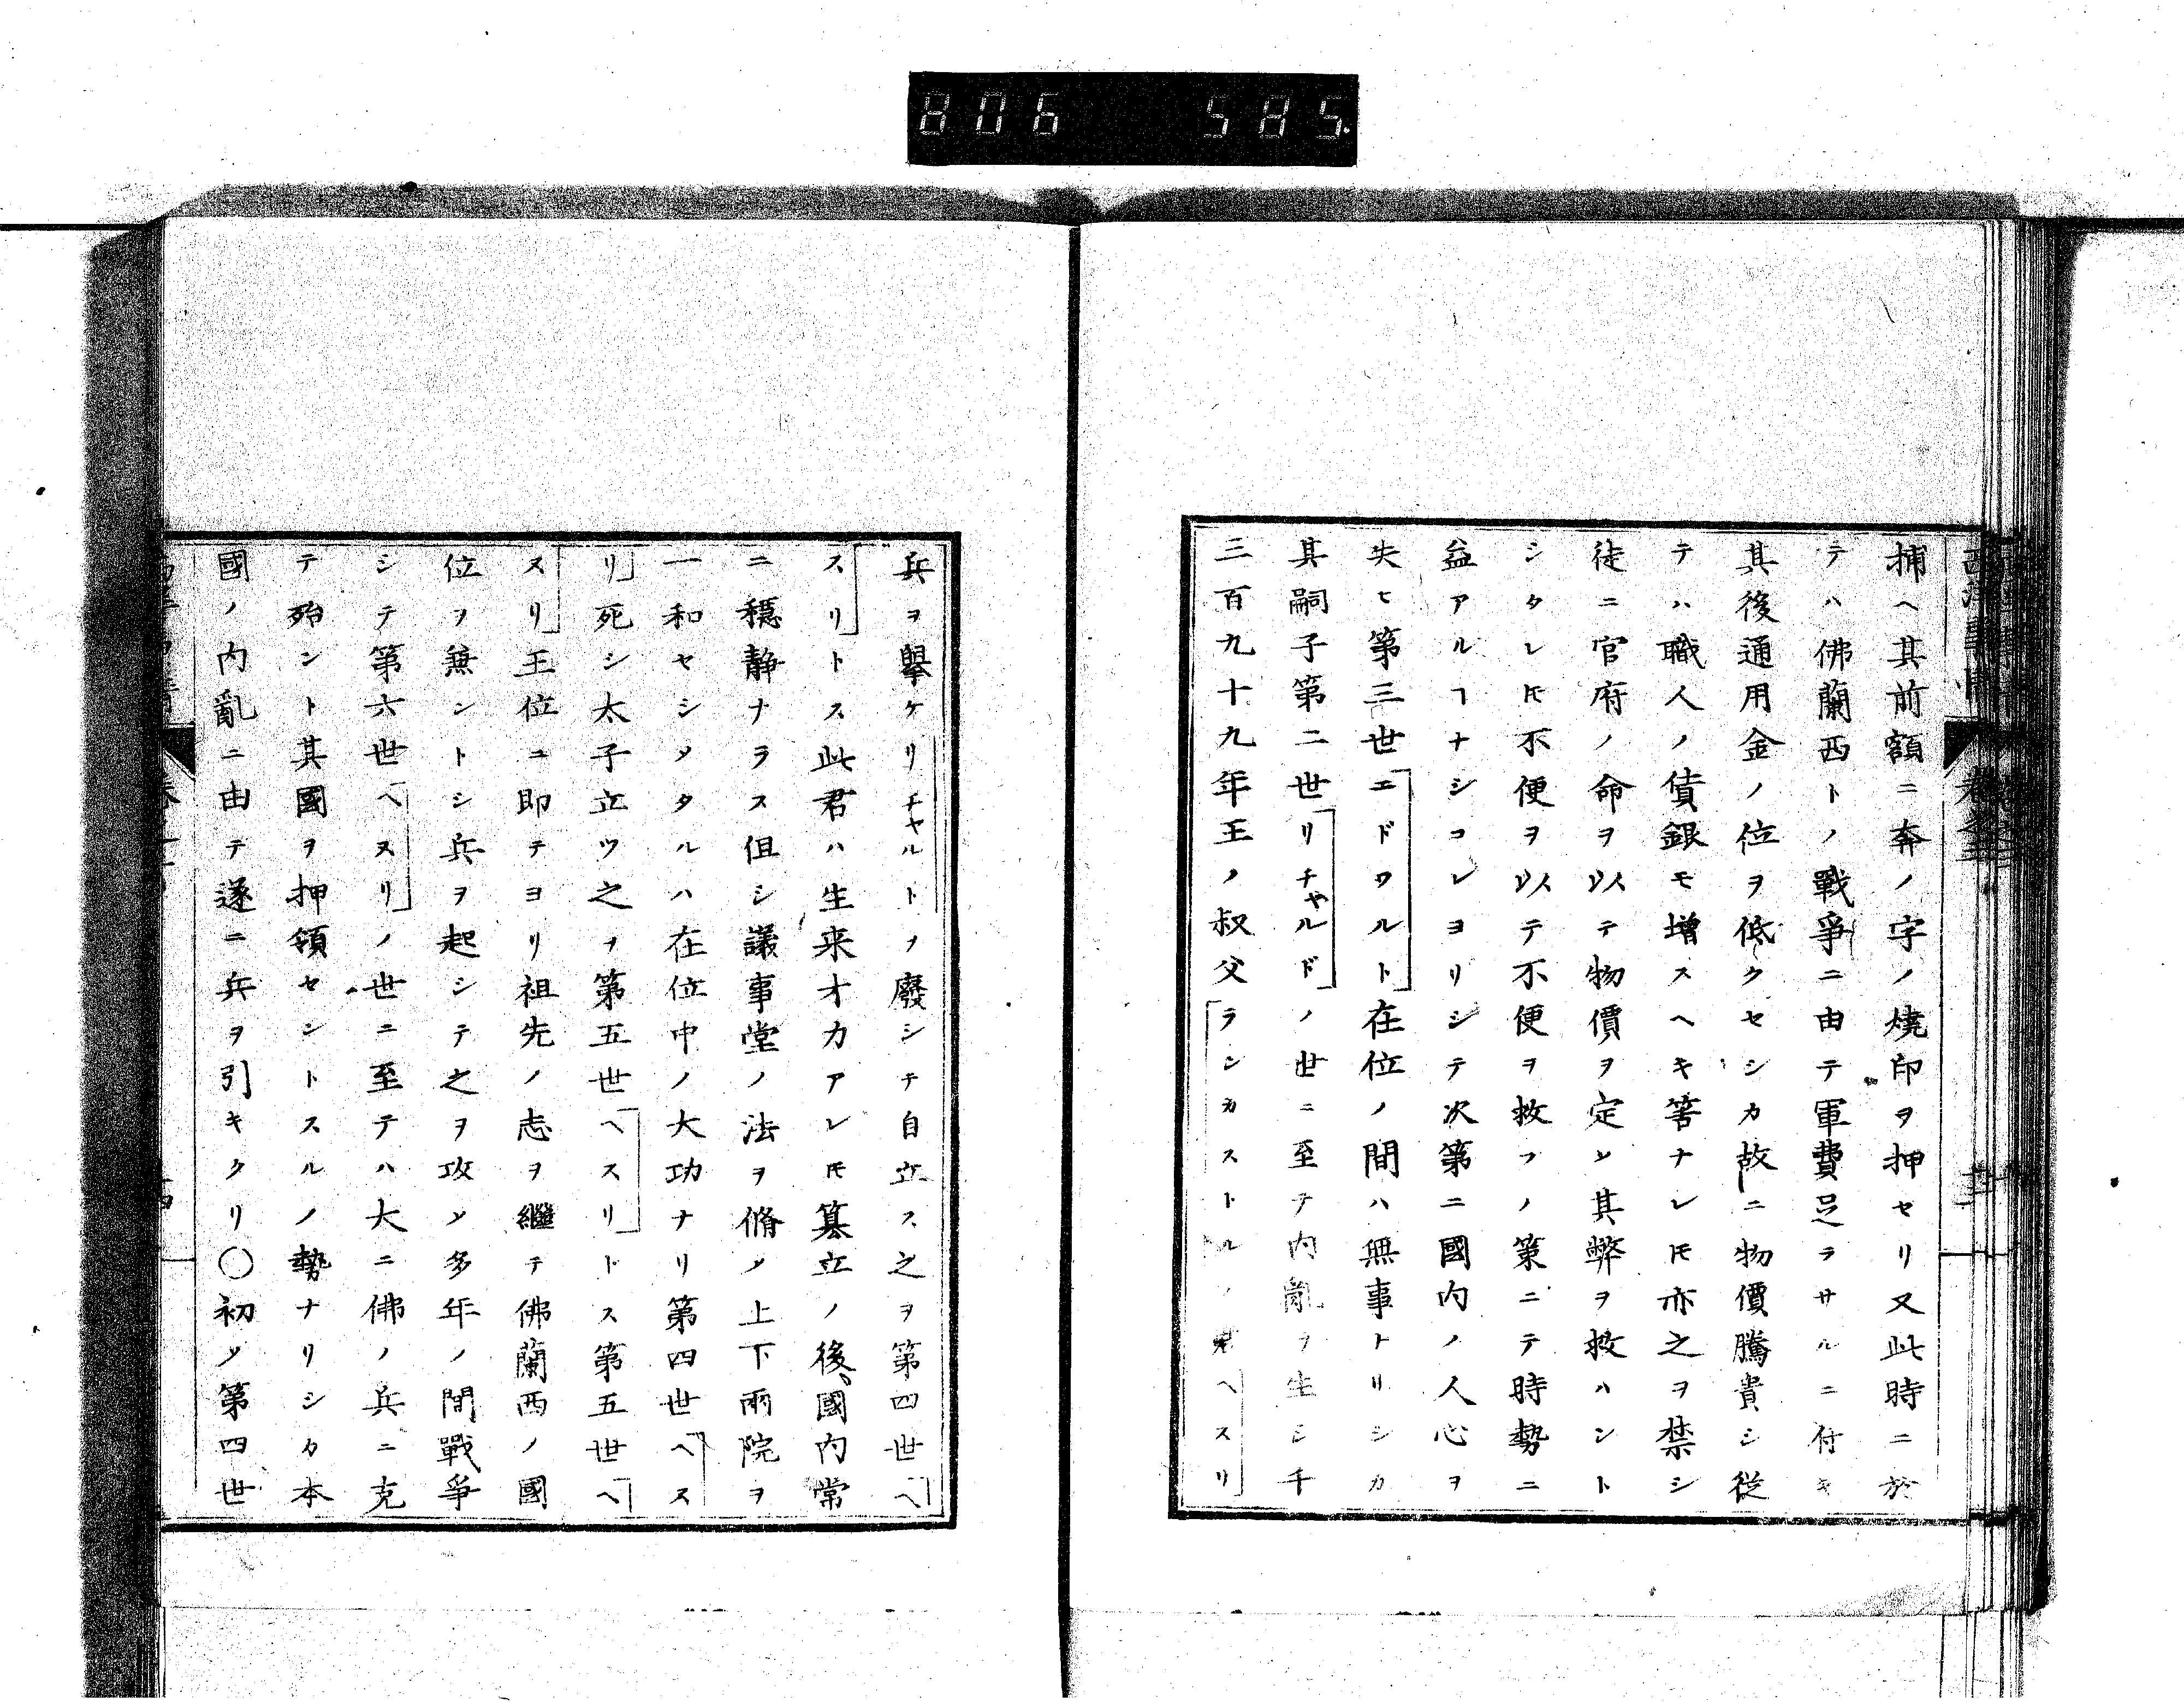 806 585.
捕ヘ其前額ニ奔ノ字ノ燒印ヲ押セリ又此時ニ於
テハ佛蘭西トノ戰爭ニ由テ軍費足ラサルニ付キ
其後通用金ノ位ヲ低クセシカ故ニ物價騰貴シ従
テハ職人ノ債銀モ増スヘキ筈ナレ𪜈亦之ヲ禁シ
徒ニ官府ノ命ヲ以テ物價ヲ定メ其弊ヲ救ハント
シタレ𪜈不便ヲ以テ不便ヲ救フノ策ニテ時勢ニ
益アルヿナシコレヨリシテ次第ニ國内ノ人心ヲ
失ヒ第三世「エドワルト」在位ノ間ハ無事トリシカ
其嗣子第二世「リチャルド」ノ世ニ至テ内亂ヲ生シ千
三百九十九年王ノ叔父「ランカストル」ノ「ヘスリ」
兵ヲ擧ケリチャルトヲ廢シテ自立ス之ヲ第四世「ヘ
スリ」トス此君ハ生来才カアレ𪜈簒立ノ後國内常
ニ穏静ナラス但シ議事堂ノ法ヲ脩メ上下兩院ヲ
一和セシメタルハ在位中ノ大功ナリ第四世「ヘス
リ」死シ太子立ツ之ヲ第五世「ヘスリ」トス第五世「ヘ
スリ」王位ニ即テヨリ祖先ノ志ヲ繼テ佛蘭西ノ國
位ヲ兼ントシ兵ヲ起シテ之ヲ攻メ多年ノ間戰爭
シテ第六世「ヘスリ」ノ世ニ至テハ大ニ佛ノ兵ニ克
テ殆ント其國ヲ押領セントスルノ勢ナリシカ本
國ノ内亂ニ由テ遂ニ兵ヲ引キタリ〇初メ第四世